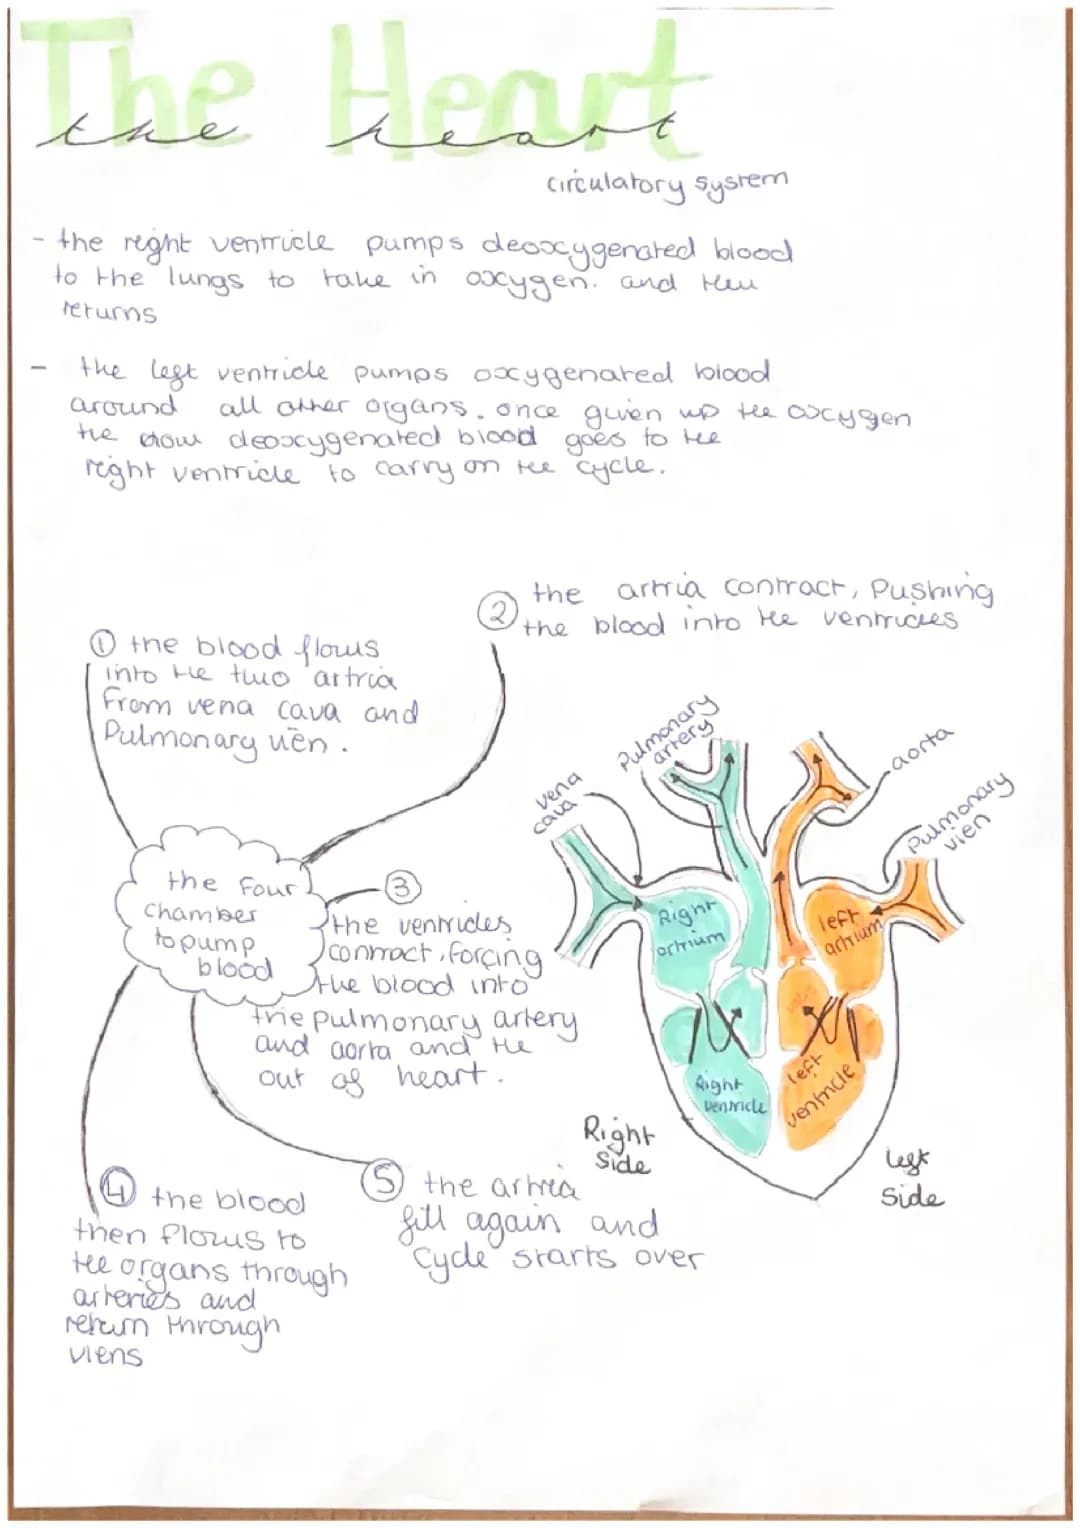 The Heart
the heart
circulatory system
- the right ventricle pumps deoxygenated blood
to the lungs to take in oxygen. and then
returns
- the left ventricle pumps oxygenated blood
around all other organs. once given up the oxygen
the now deoxygenated blood goes to the
right ventricle to carry on the cycle.
② the artria contract, Pushing
the blood into the ventricles
① the blood flows
into the two artria
from vena cava and
Pulmonary vien.
the four
chamber
to pump
blood
③
the ventricles
contract, forcing
the blood into
the pulmonary artery
and aorta and the
out of heart.
④ the blood
then flows to
the organs through
arteries and
return through
viens
⑤ the artria
fill again and
cycle starts over
vena
cava
Pulmonary
artery
aorta
Pulmonary
vien
Right
artrium
left
artrium
Right
ventricle
left
ventricle
Right
Side
left
Side